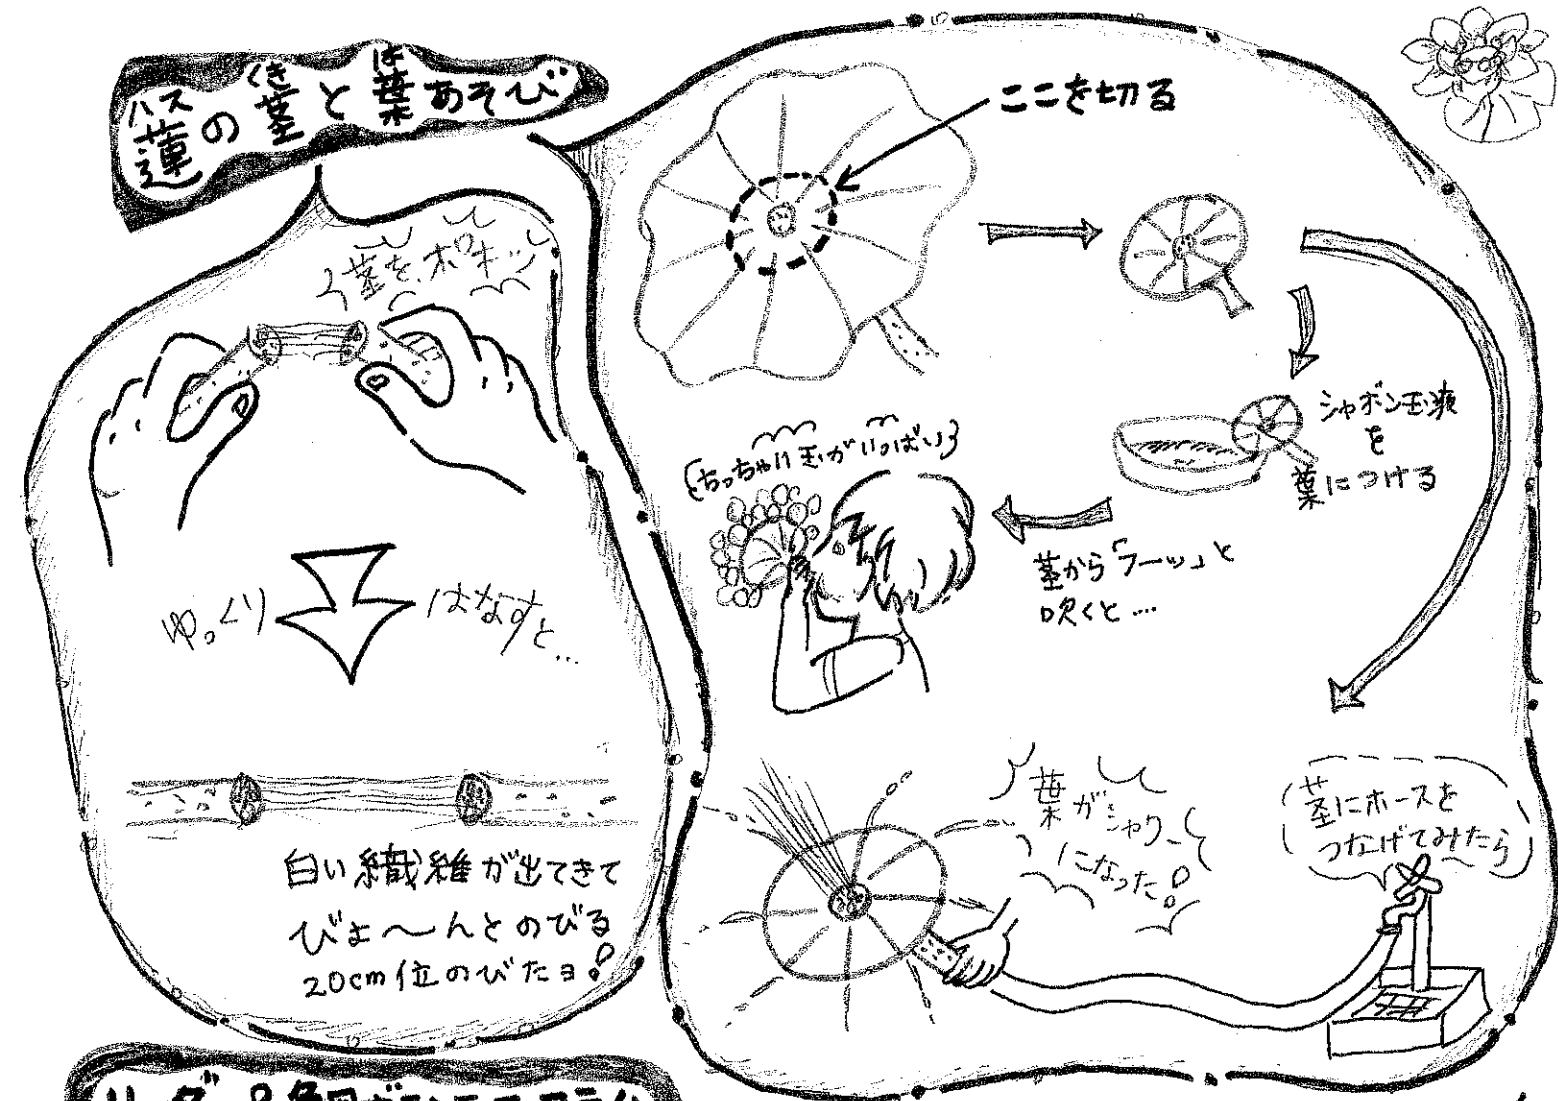 蓮の茎と葉あそび
ハス くき は
茎をポキッ
ゆっくり
はなすと…
白い繊維が出てきて
びよ〜んとのびる
20cm位のびたョ!
ここを切る
シャボン玉液
を
葉につける
茎から「フーッ」と
吹くと…
ちっちゃい玉がいっぱい
茎にホースを
つなげてみたら
葉がシャワー
になった!